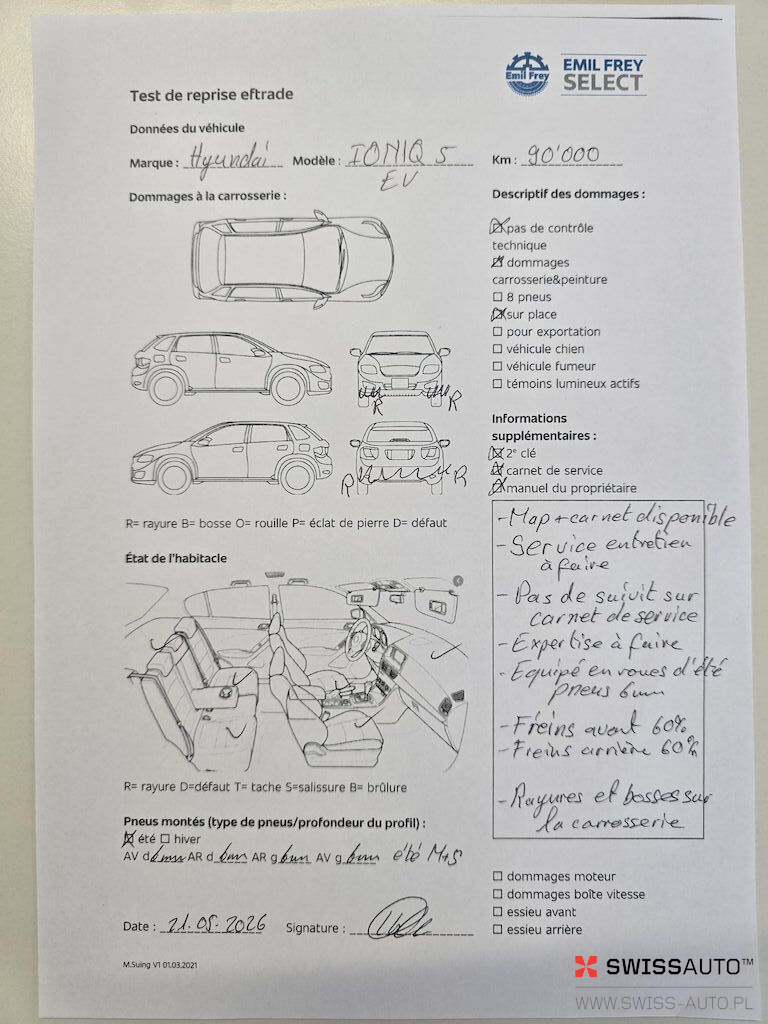 Emil Frey
EMIL FREY
SELECT
Test de reprise eftrade
Données du véhicule
Marque : Hyundai Modèle : IONIQ 5 Km : 90'000
EV
Dommages à la carrosserie :
R R
R R
R= rayure B= bosse O= rouille P= éclat de pierre D= défaut
État de l'habitacle
R= rayure D=défaut T= tache S=salissure B= brûlure
Pneus montés (type de pneus/profondeur du profil) :
été hiver
AV d 6mm AR d 6mm AR g 6mm AV g 6mm été M+S
Date : 21.05.2026 Signature :
M.Suing V1 01.03.2021
Descriptif des dommages :
pas de contrôle
technique
dommages
carrosserie&peinture
8 pneus
sur place
pour exportation
véhicule chien
véhicule fumeur
témoins lumineux actifs
Informations
supplémentaires :
2e clé
carnet de service
manuel du propriétaire
- Map + carnet disponible
- Service entretien
à faire
- Pas de suivit sur
carnet de service
- Expertise à faire
- Equipé en roues d'été
pneus 6mm
- Freins avant 60%
- Freins arrière 60%
- Rayures et bosses sur
la carrosserie
dommages moteur
dommages boîte vitesse
essieu avant
essieu arrière
SWISSAUTO™
WWW.SWISS-AUTO.PL